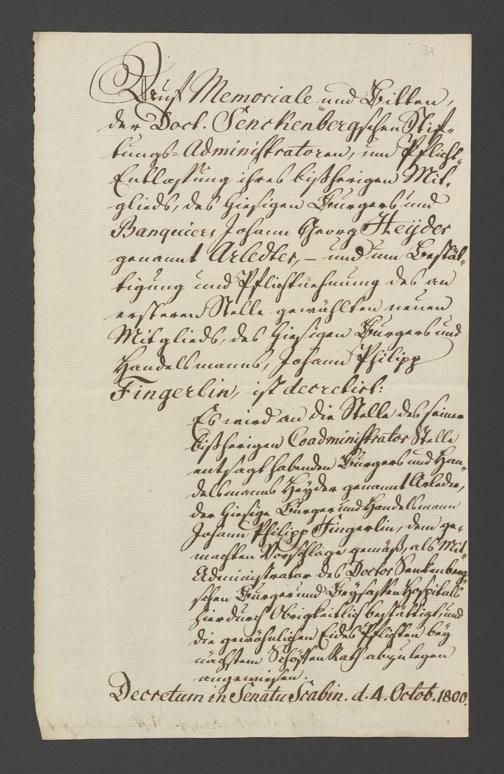 34
Auf Memoriale und Bitten,
der Doct. Senckenbergschen Stif-
tungs-Administratoren, um Pflicht-
Entlassung ihres bißherigen Mit-
glieds, des hiesigen Burgers und
Banquiers Johann Georg Heyder
genannt Arledter, – und um Bestät-
tigung und Pflichtnehmung des an
ersteren Stelle gewählten neuen
Mitglieds, des hiesigen Burgers und
Handelsmanns, Johann Philipp
Fingerlin, ist decretirt:
Es wird an die Stelle des seiner
bißherigen Coadministrator Stelle
entsagt habenden Burgers und Han-
delsmanns Heyder genannt Arleder,
der hiesige Burger und Handelsmann
Johann Philipp Fingerlin, dem ge-
machten Vorschlage gemäß, als Mit-
Administrator des Doctor Senkenberg-
schen Burger und Beysassen Hospitals
hierdurch Obrigkeitlich bestättigt, und
die gewöhnlichen Eides Pflichten bey
nächstem Schöffen Rath abzulegen
angewiesen.
Decretum in Senatu Scabin. d. 4. Octob. 1800.